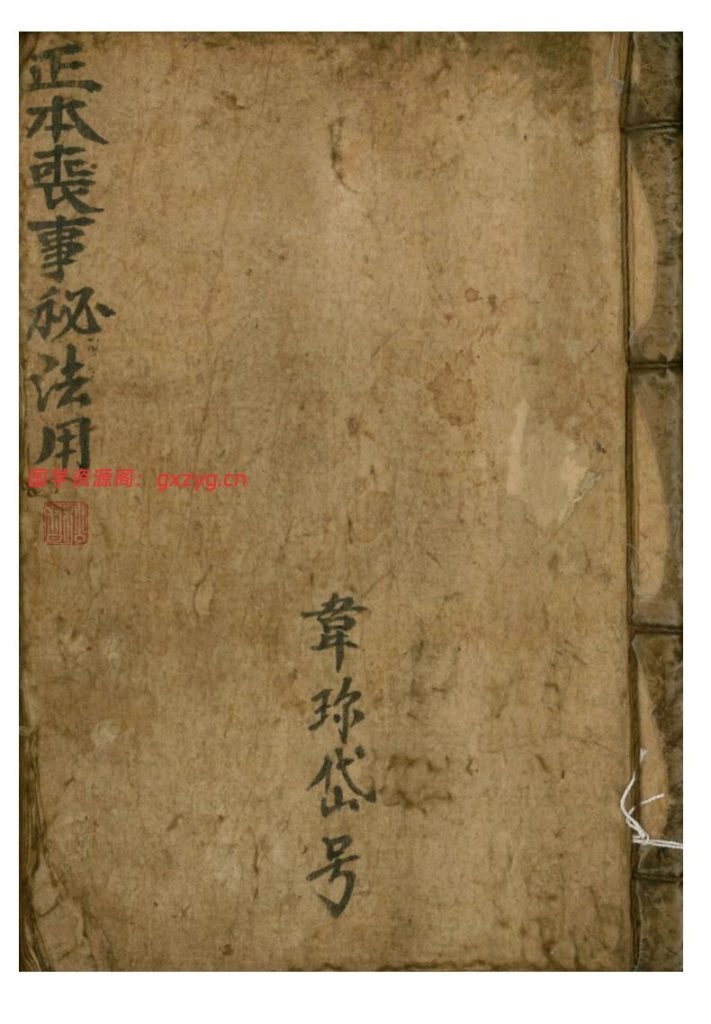 正本喪事秘法用
国学资源阁：gxzyg.cn
韋珎岱号